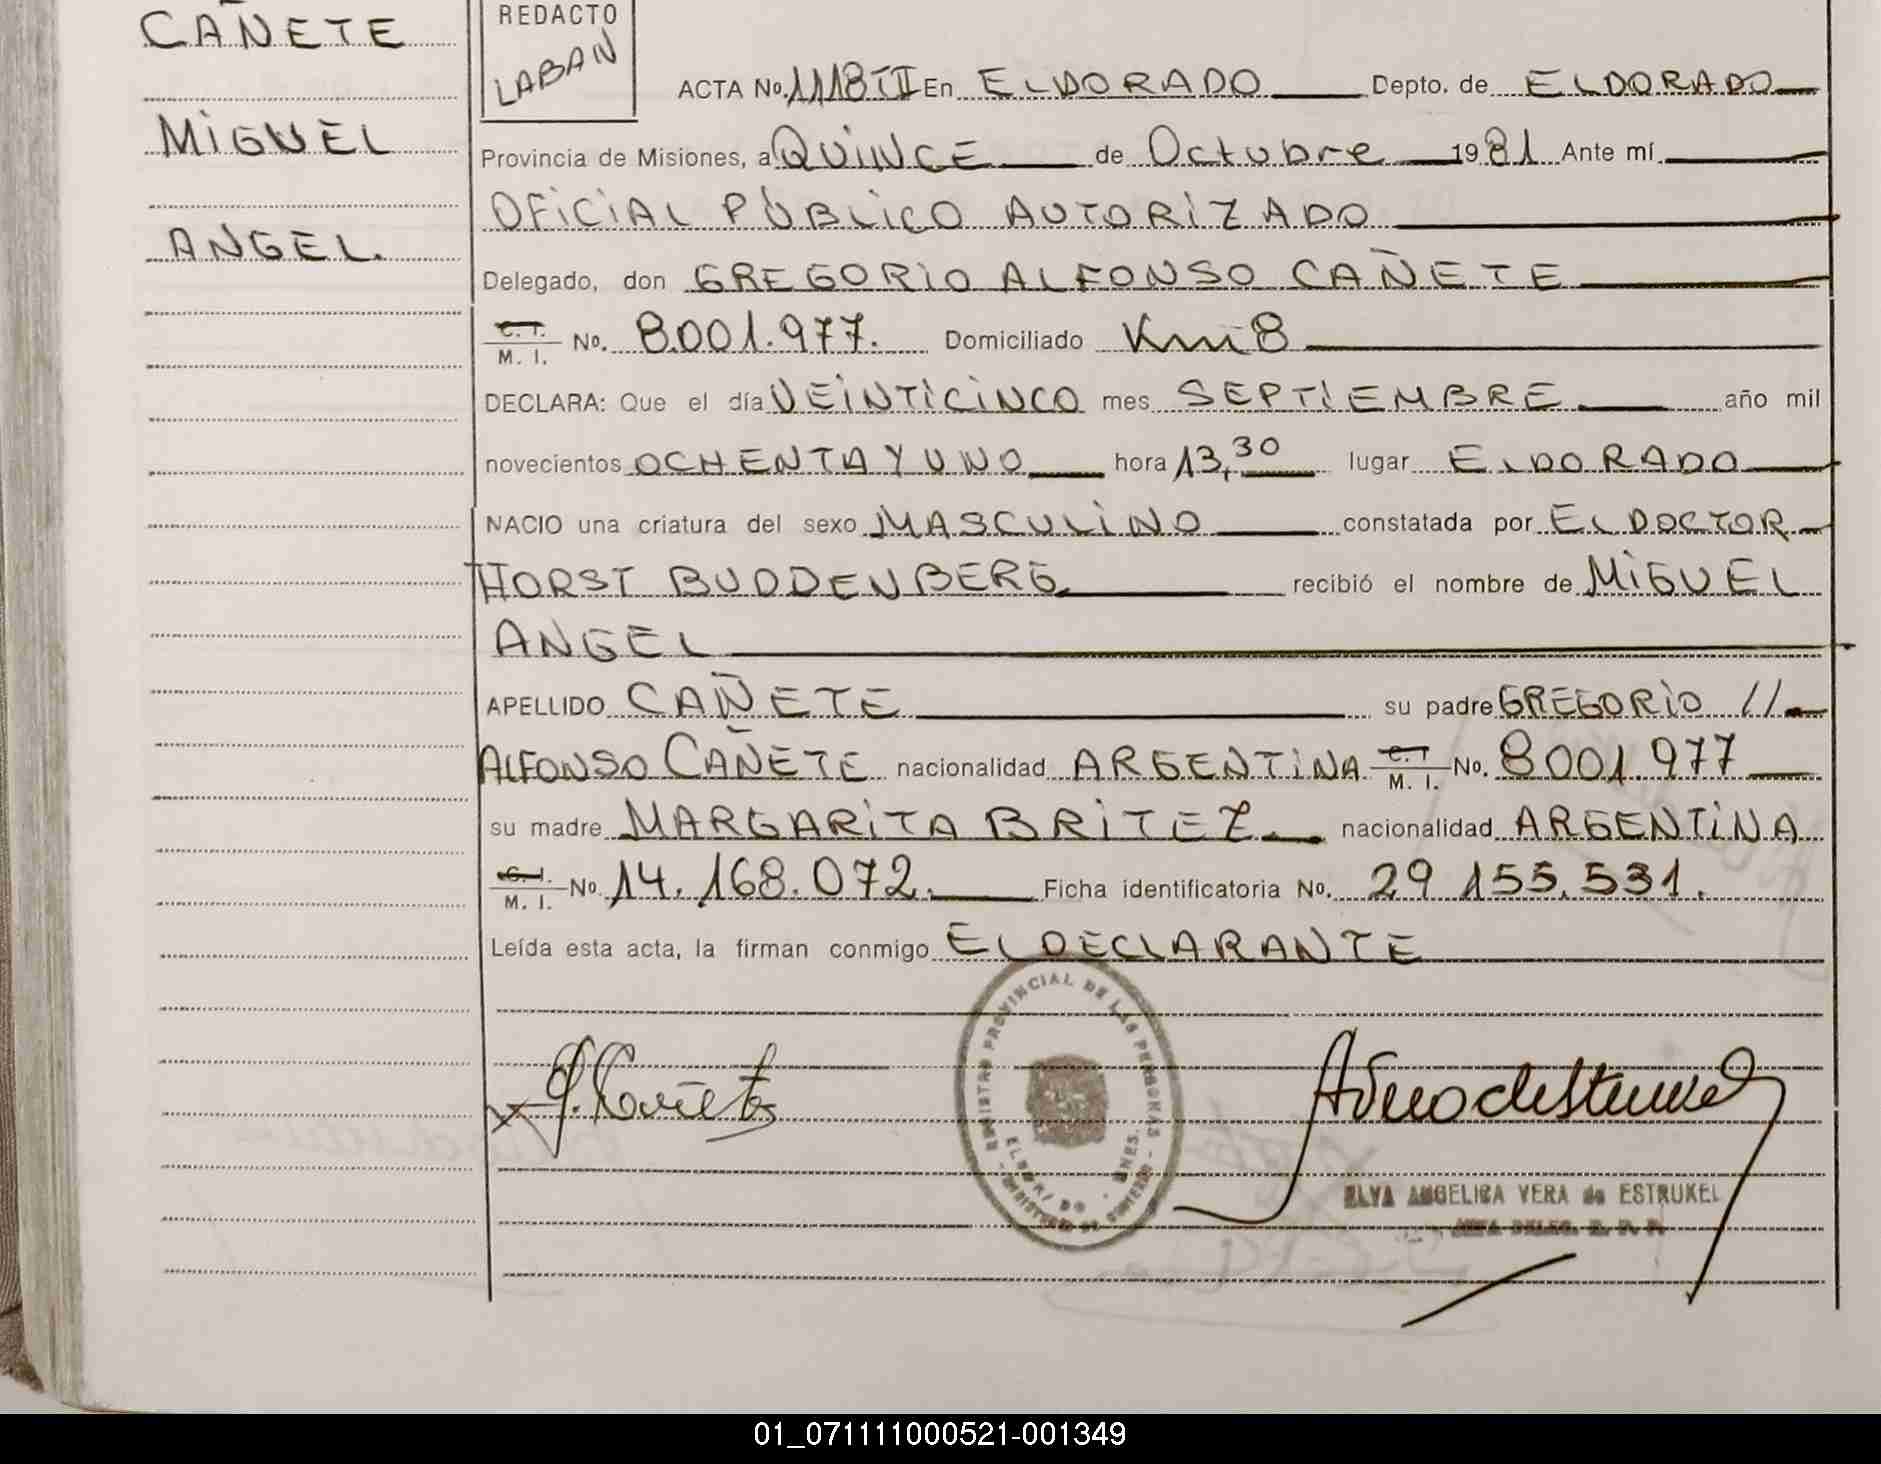 CAÑETE
MIGUEL
ANGEL.
REDACTO
LABAN
ACTA No. 1118 TII En ELDORADO Depto. de ELDORADO
Provincia de Misiones, a QUINCE de Octubre 1981 Ante mí
OFICIAL PÚBLICO AUTORIZADO
Delegado, don GREGORIO ALFONSO CAÑETE
C. I. M. I. No. 8.001.977. Domiciliado Km 8
DECLARA: Que el día VEINTICINCO mes SEPTIEMBRE año mil
novecientos OCHENTA Y UNO hora 13,30 lugar ELDORADO
NACIO una criatura del sexo MASCULINO constatada por EL DOCTOR
HORST BUDDENBERG recibió el nombre de MIGUEL
ANGEL
APELLIDO CAÑETE su padre GREGORIO //
ALFONSO CAÑETE nacionalidad ARGENTINA C. I M. I. No. 8001.977
su madre MARGARITA BRITEZ nacionalidad ARGENTINA
C. I. M. I. No. 14.168.072. Ficha identificatoria No. 29 155.531.
Leída esta acta, la firman conmigo EL DECLARANTE
REGISTRO PROVINCIAL DE LAS PERSONAS
ELDORADO - MNES.
MINISTERIO DE GOBIERNO
G. Cañete
ELVA ANGELICA VERA de ESTRUKEL
JEFA DELEG. R. P. P.
01_071111000521-001349